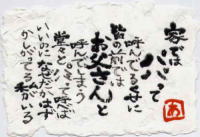 家では
パパって
呼んでるくせに
皆の前では
お父さんと
呼んでしまう
堂々とパパって呼べば
いいのになぜかはず
かしがってる私がいる